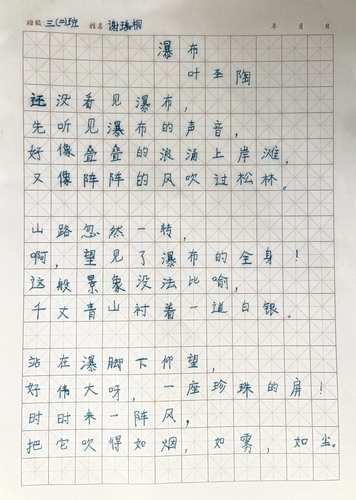 班级 三(二)班 姓名 谢瑞桐 年 月 日
瀑布
叶圣陶
还没看见瀑布，
先听见瀑布的声音，
好像叠叠的浪涌上岸滩，
又像阵阵的风吹过松林。
山路忽然一转，
啊，望见了瀑布的全身！
这般景象没法比喻，
千丈青山衬着一道白银。
站在瀑脚下仰望，
好伟大呀，一座珍珠的屏！
时时来一阵风，
把它吹得如烟，如雾，如尘。